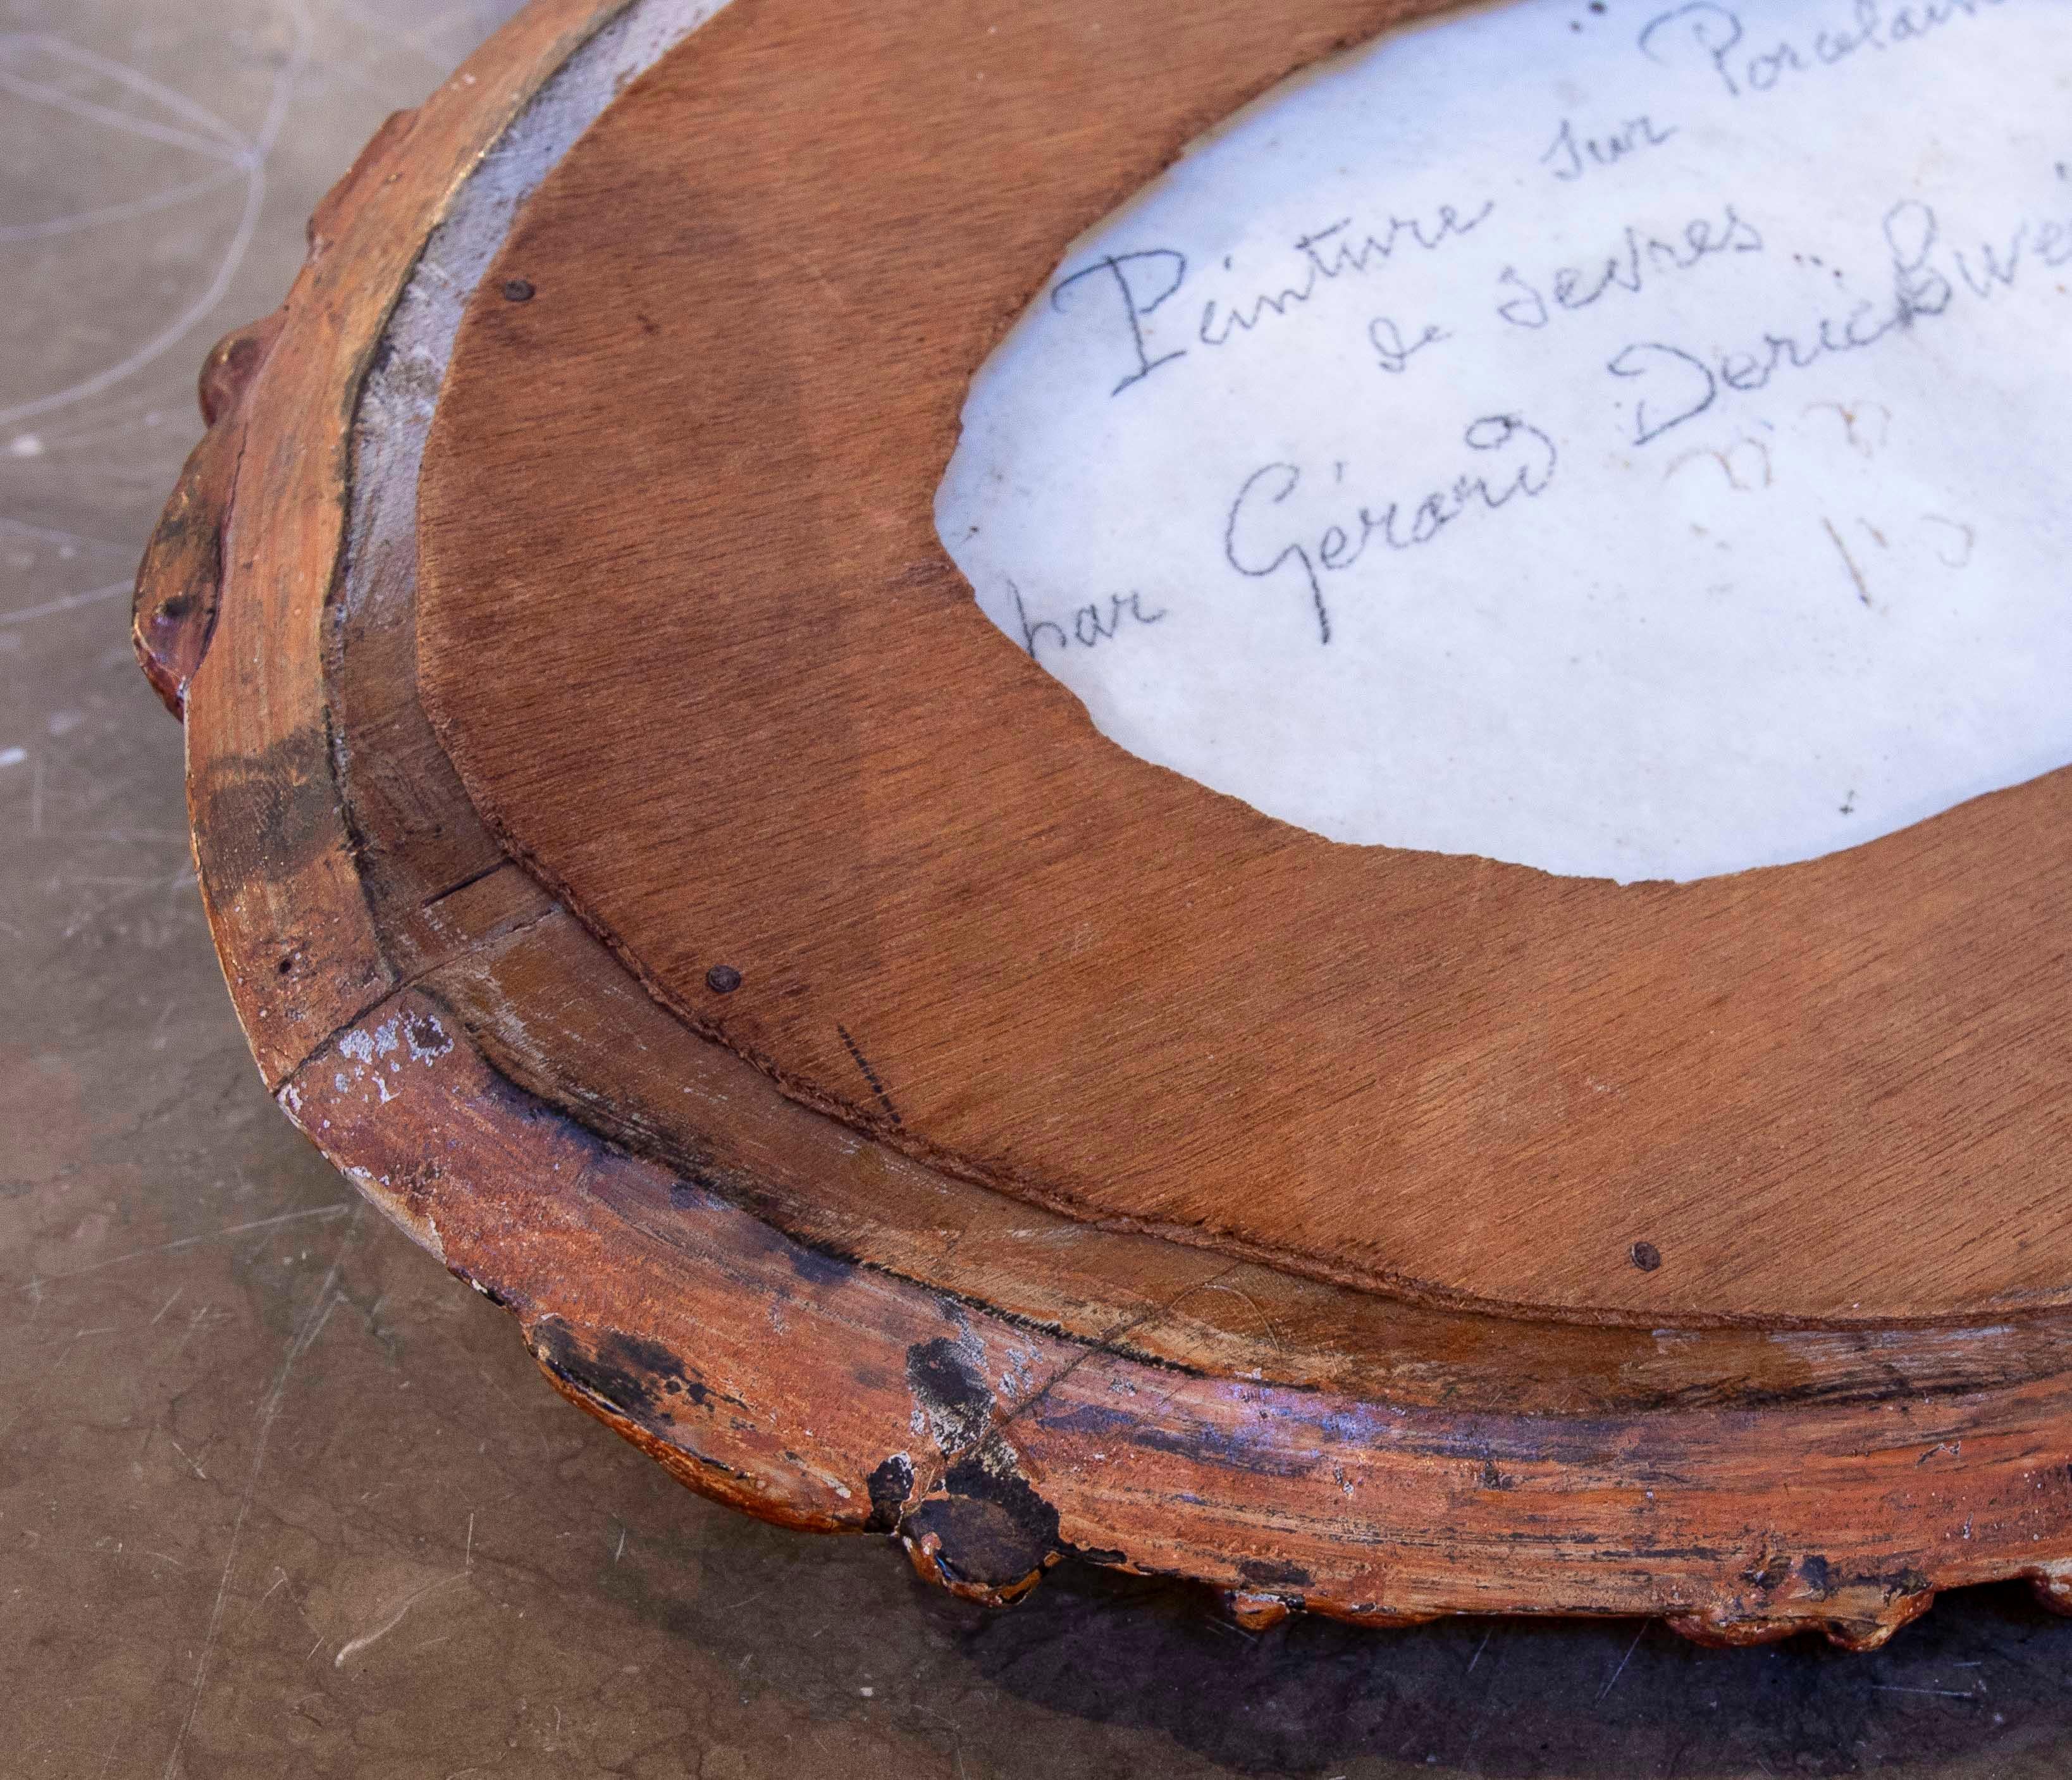 Peinture sur Porcelain
de Sevres
par Gérard Derick